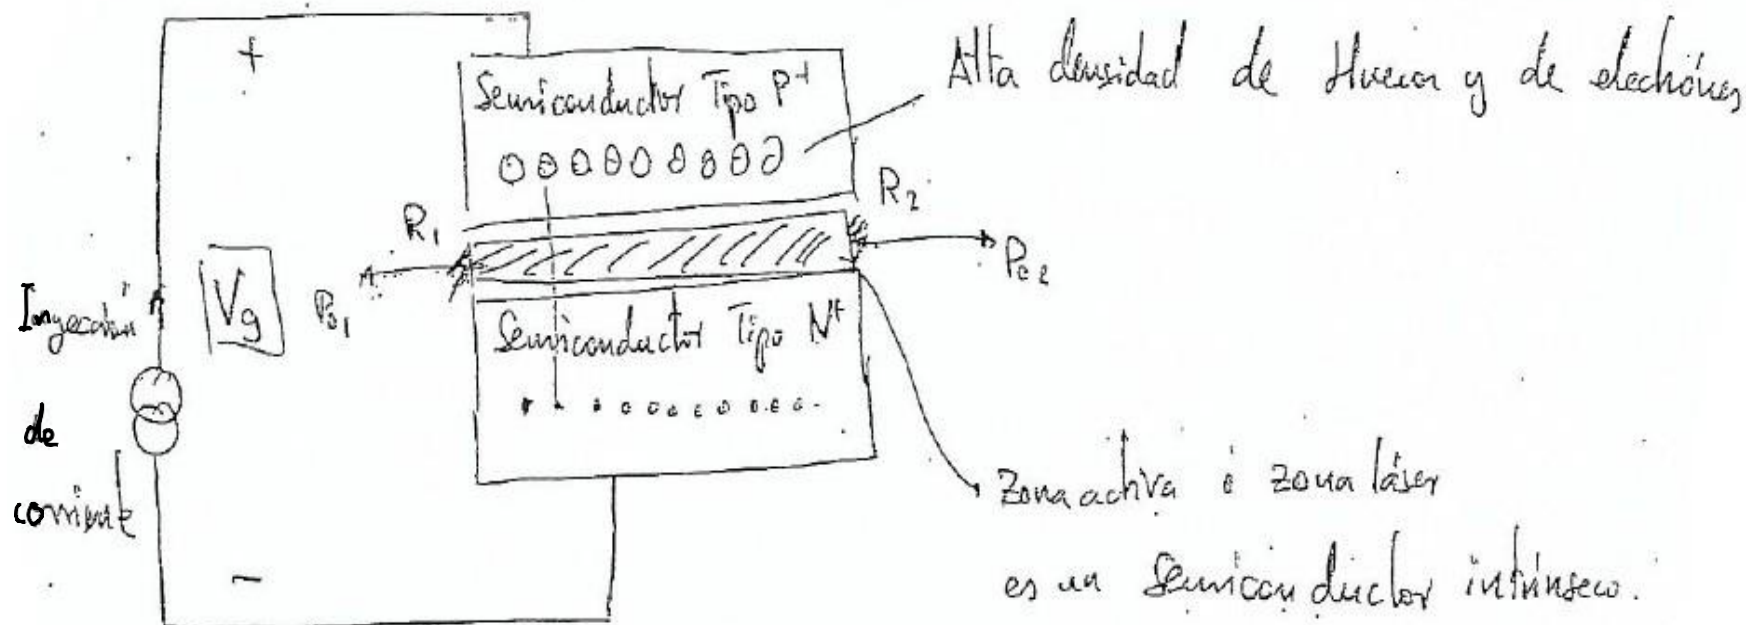 +
Semiconductor Tipo P+
Alta densidad de Huecos y de electrónes
R1
R2
Inyección
Vg
Po1
Po2
Semiconductor Tipo N+
de
corriente
Zona activa ó zona láser
es un semiconductor intrínseco.
-